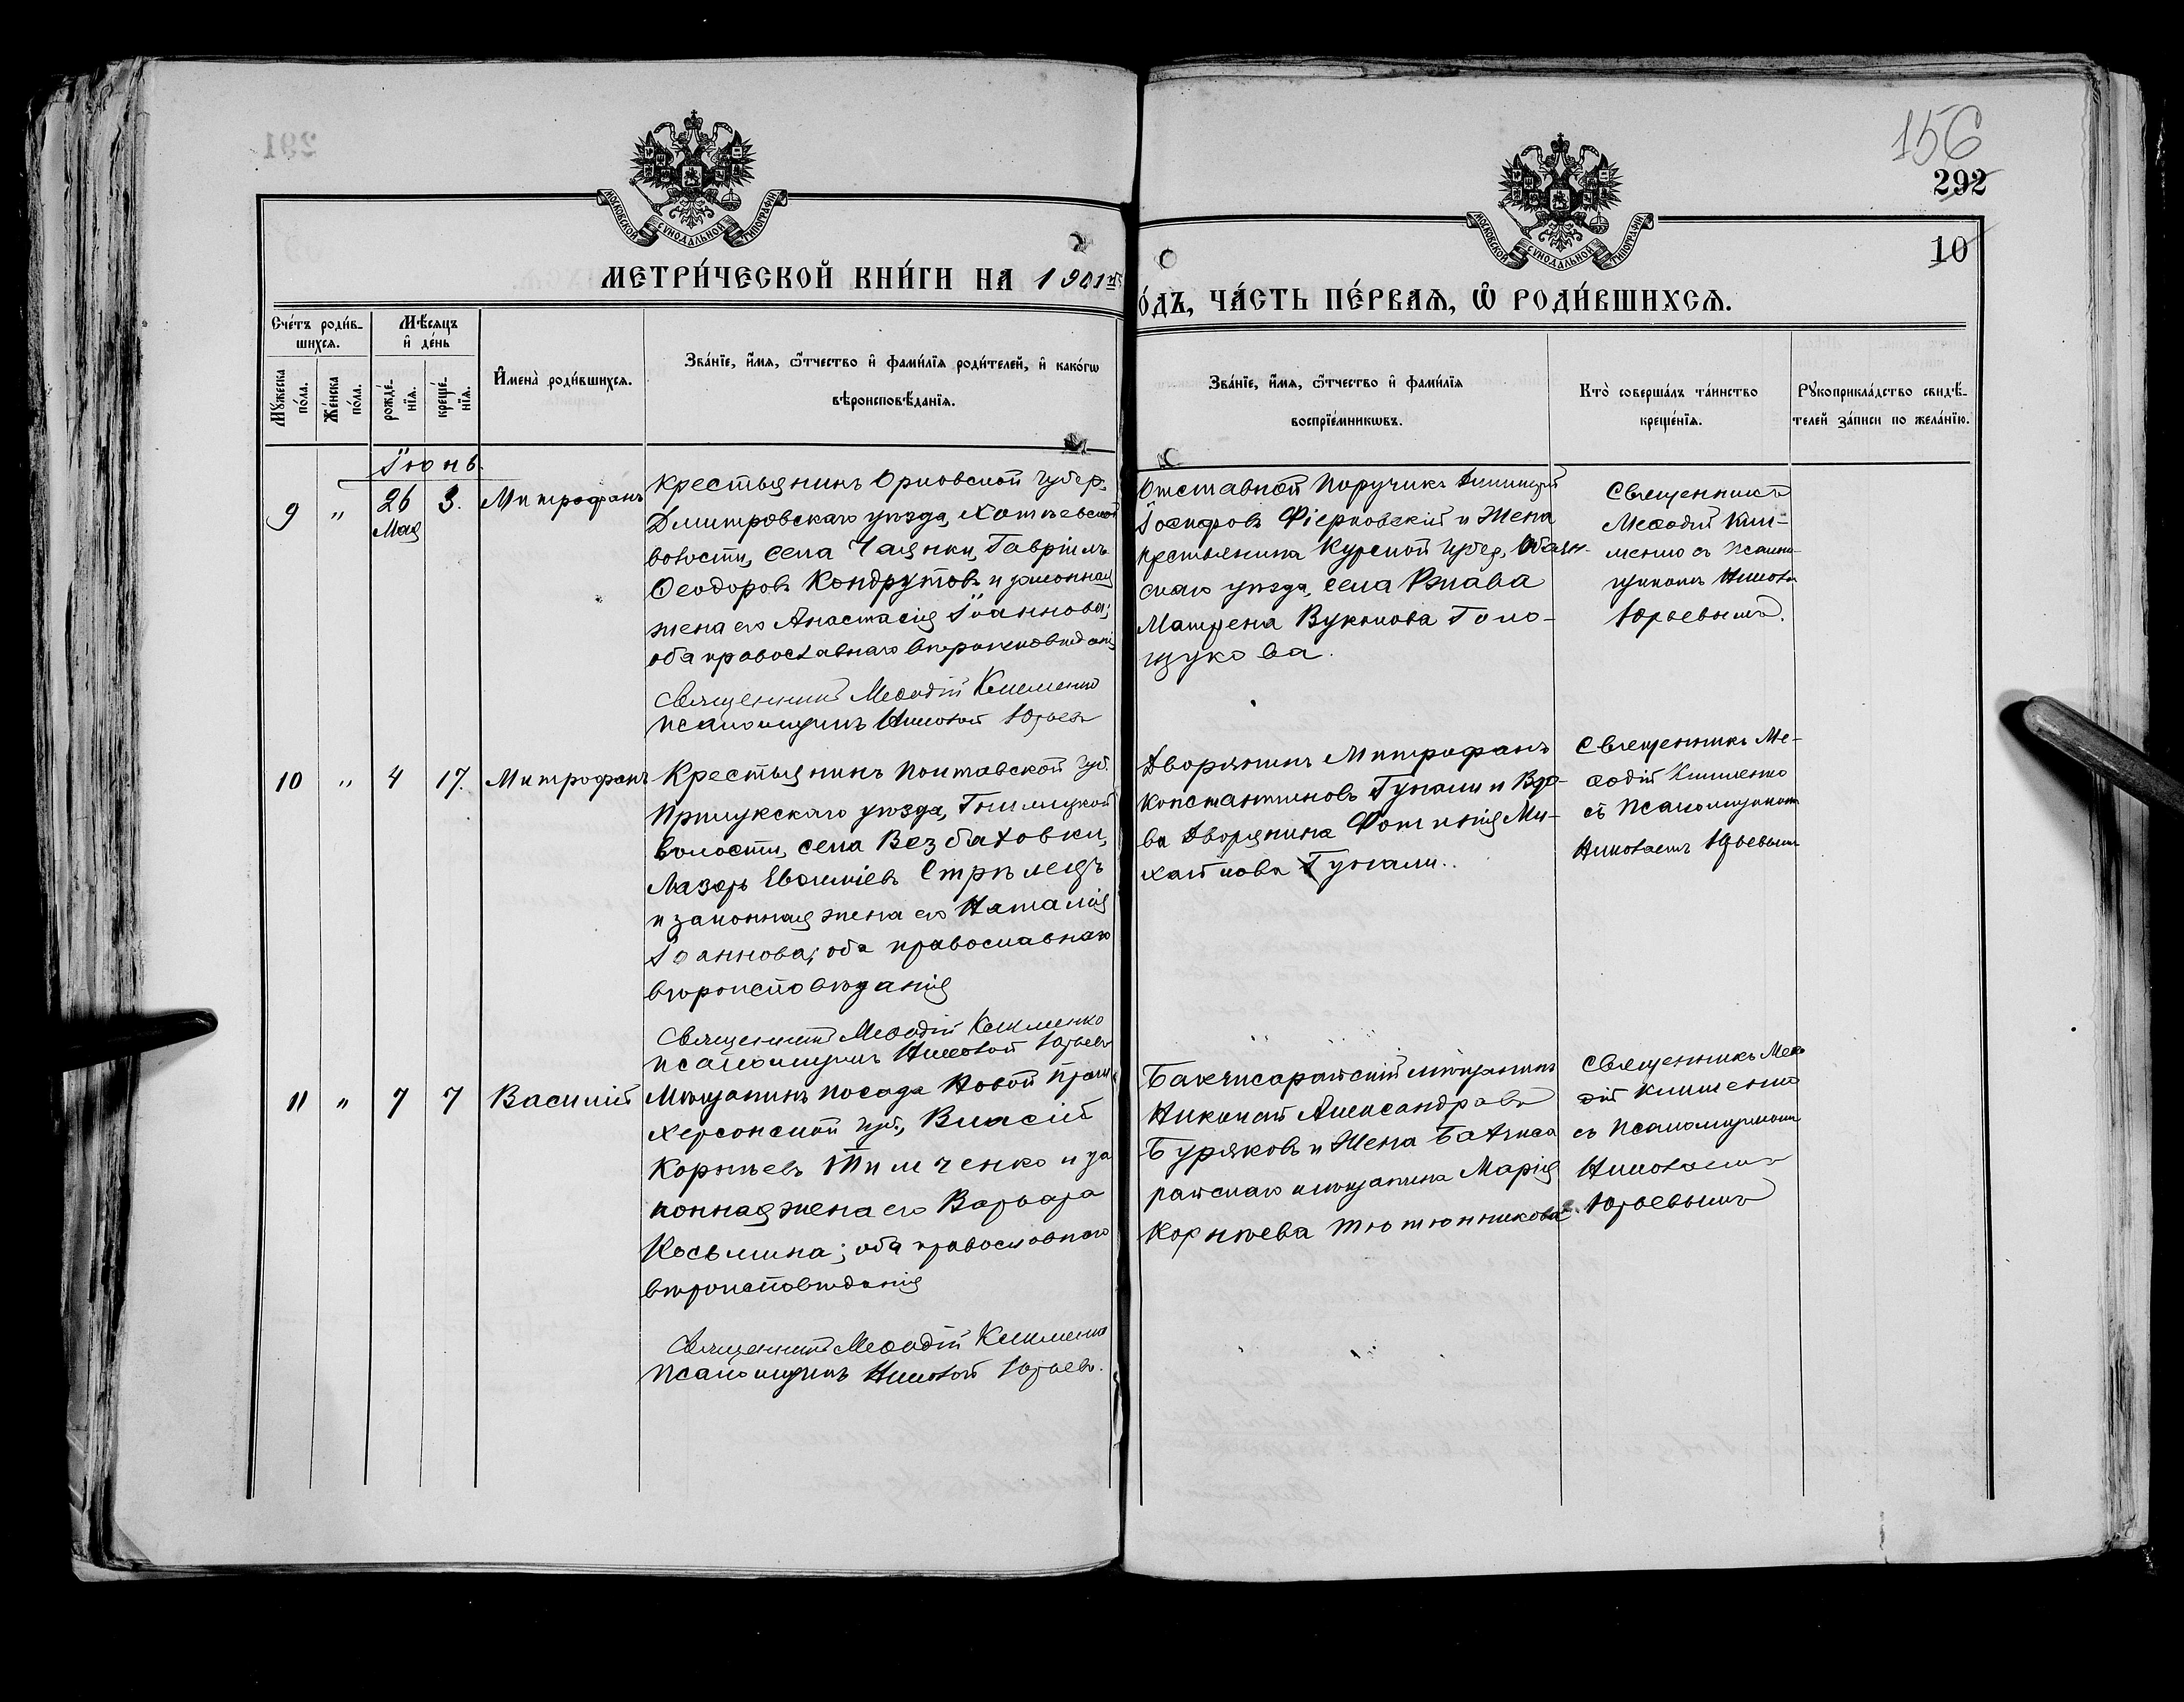 156
292
10
МОСКОВСКОЙ СУНОДАЛЬНОЙ ТИПОГРАФІИ
МОСКОВСКОЙ СУНОДАЛЬНОЙ ТИПОГРАФІИ
МЕТРИ́ЧЕСКОЙ КНИ́ГИ НА 1901й
О́ДЪ, ЧА́СТЬ ПЕ́РВАѦ, Ѡ҆ РОДИ́ВШИХСѦ.
Сче́тъ роди́в-
шихсѧ.
Мꙋ́жеска
по́ла.
Же́нска
по́ла.
Мѣ́сѧцъ
и҆ де́нь
рожде́-
нїѧ.
креще́-
нїѧ.
И҆мена̀ роди́вшихсѧ.
Зва́нїе, и҆́мѧ, ѻ҆́тчество и҆ фами́лїѧ роди́телей, и҆ како́гѡ
вѣроисповѣ́данїѧ.
Зва́нїе, и҆́мѧ, ѻ҆́тчество и҆ фами́лїѧ
воспрїе́мникѡвъ.
Кто̀ соверша́лъ та́инство
креще́нїѧ.
Рꙋкоприкла́дство свидѣ́-
телей за́писи по жела́нїю.
Іюнь.
9 " 26 3. Митрофанъ
Мая
Крестьянинъ Орловской губер.
Дмитровскаго уѣзда, Хотѣевской
волости, села Чаянки, Гавріилъ
Ѳеодоровъ Кондрутовъ и законная
жена его Анастасія Іоаннова;
оба православнаго вѣроисповѣданія
Священникъ Меѳодій Клименко
Псаломщикъ Николай Юрьевъ
Отставной Поручикъ Димитрій
Іосифовъ Фіерковскій и Жена
крестьянина Курской губер. Обаян-
скаго уѣзда, села Ржава
Матрена Вуколова Голо-
щукова.
Священникъ
Меѳодій Кли-
менко съ Псалом-
щикомъ Никола
Юрьевымъ.
10 " 4 17. Митрофанъ
Крестьянинъ Полтавской губ.
Прилукскаго уѣзда, Гнилицкой
волости, села Безбаховки,
Лазарь Евѳиміевъ Стрѣлецъ
и законная жена его Наталія
Іоаннова; оба православнаго
вѣроисповѣданія
Священникъ Меѳодій Клименко
Псаломщикъ Николай Юрьевъ
Дворянинъ Митрофанъ
Константиновъ Гункали и Вдо-
ва Дворянина Фотинія Ми-
хайлова Гункали.
Священникъ Ме-
ѳодій Клименко
съ Псаломщикомъ
Николаемъ Юрьевымъ
11 " 7 7 Василій
Мѣщанинъ посада Новой Праги
Херсонской губ., Власій
Корнѣевъ Тимченко и за
конная жена его Варвара
Косьмина; оба православнаго
вѣроисповѣданія
Священникъ Меѳодій Клименко
Псаломщикъ Николай Юрьевъ.
Бахчисарайскій мѣщанинъ
Николай Александровъ
Буряковъ и Жена Бахчиса
райскаго мѣщанина Марія
Корнѣева Тютюнникова
Священникъ Меѳо
дій Клименко
съ Псаломщикомъ
Николаемъ
Юрьевымъ